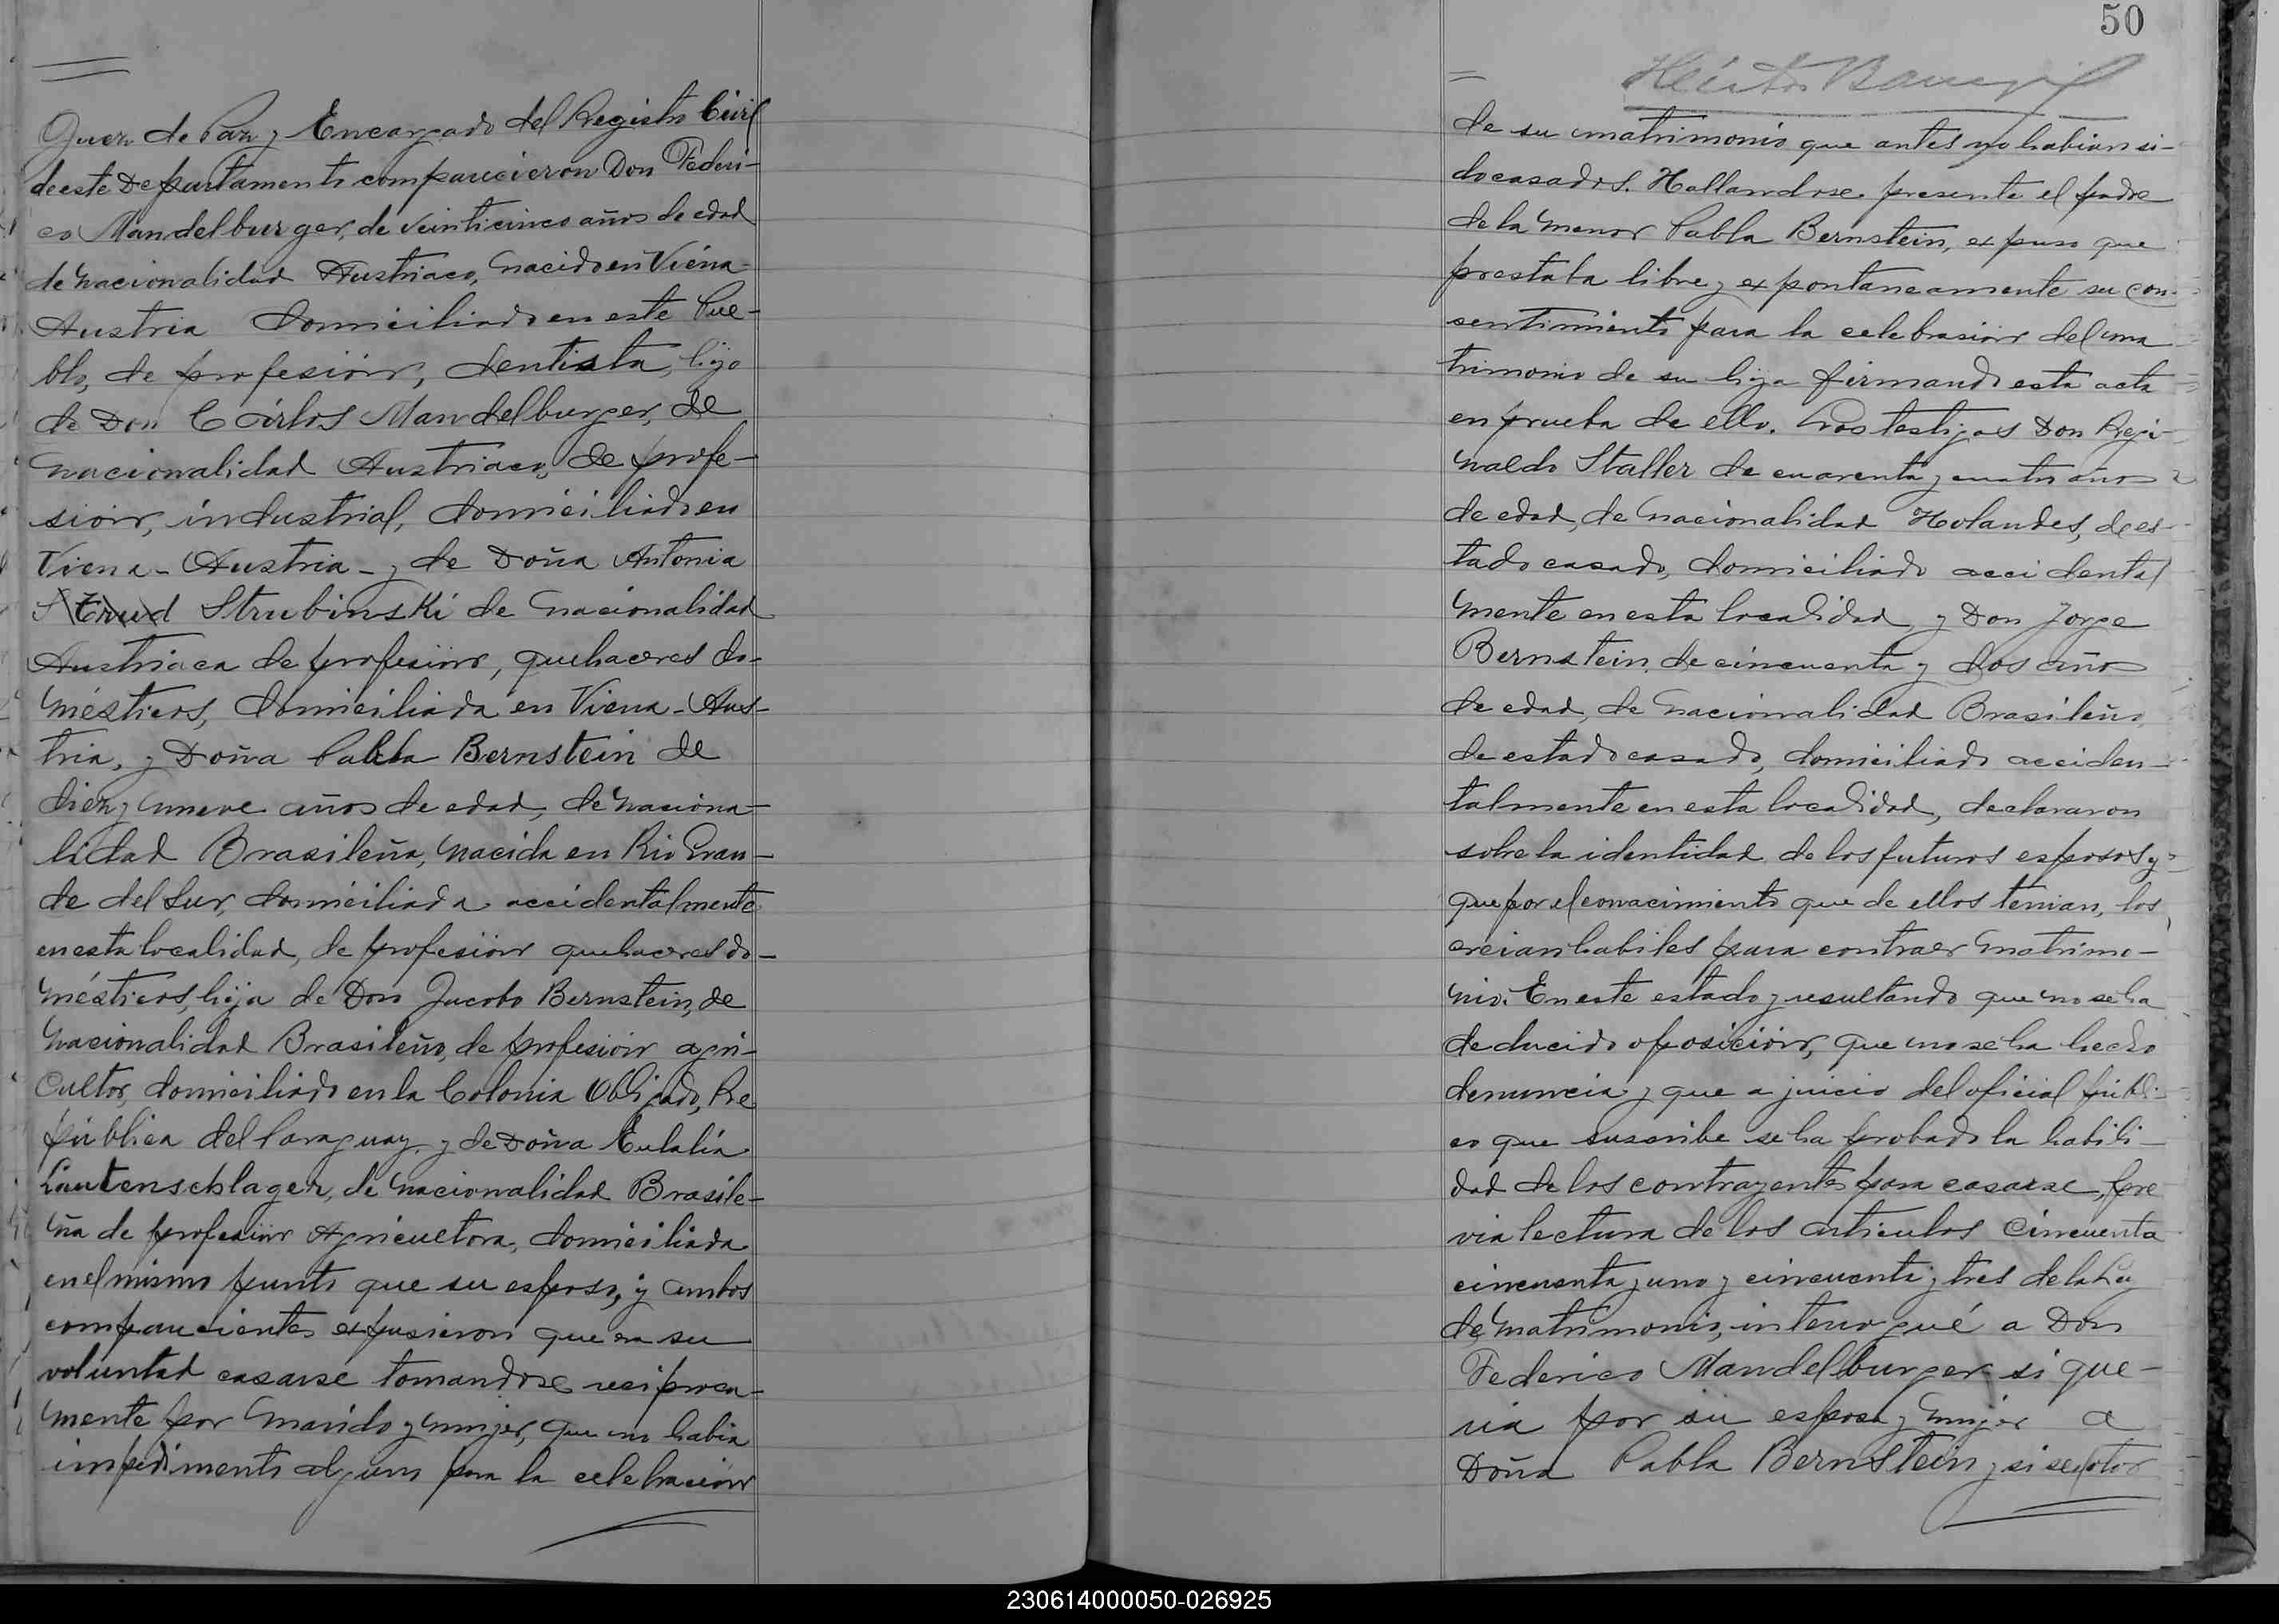 Juez de Paz y Encargado del Registro Civil
de este Departamento comparecieron Don Federi-
co Mandelburger, de veinticinco años de edad
de nacionalidad Austriaco, nacido en Viena-
Austria domiciliado en este Pue-
blo, de profesión, dentista, hijo
de Don Cárlos Mandelburger, de
nacionalidad Austriaco, de profe-
sión, industrial, domiciliado en
Viena - Austria - y de Doña Antonia
Strubinski de nacionalidad
Austriaca de profesión, quehaceres do-
mésticos, domiciliada en Viena - Aus-
tria, y Doña Pabla Bernstein de
diez y nueve años de edad, de naciona-
lidad Brasileña, nacida en Rio Gran-
de del Sur, domiciliada accidentalmente
en esta localidad, de profesión quehaceres do-
mésticos, hija de Don Jacobo Bernstein, de
nacionalidad Brasileño, de profesión agri-
cultor, domiciliado en la Colonia Obligado, Re
pública del Paraguay, y de Doña Eulalia
Lautenschlager, de nacionalidad Brasile-
ña de profesión Agricultora, domiciliada
en el mismo punto que su esposo, y ambos
comparecientes expusieron que era su
voluntad casarse tomandose reciproca-
mente por marido y mujer, que no habia
impedimento alguno para la celebración
50
Héctor
de su matrimonio que antes no habian si-
do casados. Hallandose presente el padre
de la menor Pabla Bernstein, expuso que
prestaba libre y expontaneamente su con-
sentimiento para la celebrasión del ma
trimonio de su hija firmando esta acta
en prueba de ello. Los testigos Don Regi-
naldo Staller de cuarenta y cuatro años
de edad, de nacionalidad Holandes, de es-
tado casado, domiciliado accidental
mente en esta localidad, y Don Jorge
Bernstein, de cincuenta y dos años
de edad, de nacionalidad Brasileño,
de estado casado, domiciliado acciden-
talmente en esta localidad, declararon
sobre la identidad de los futuros esposos y
que por el conocimiento que de ellos tenian, los
creian habiles para contraer matrimo-
nio. En este estado y resultando que no se ha
deducido oposición, que no se ha hecho
denuncia y que a juicio del oficial públi-
co que suscribe se ha probado la habili-
dad de los contrayentes para casarse, pre
via lectura de los articulos cincuenta
cincuenta y uno y cincuenta y tres de la Ley
de Matrimonio, interrogué a Don
Federico Mandelburger si que-
ria por su esposa y mujer a
Doña Pabla Bernstein y si se
230614000050-026925